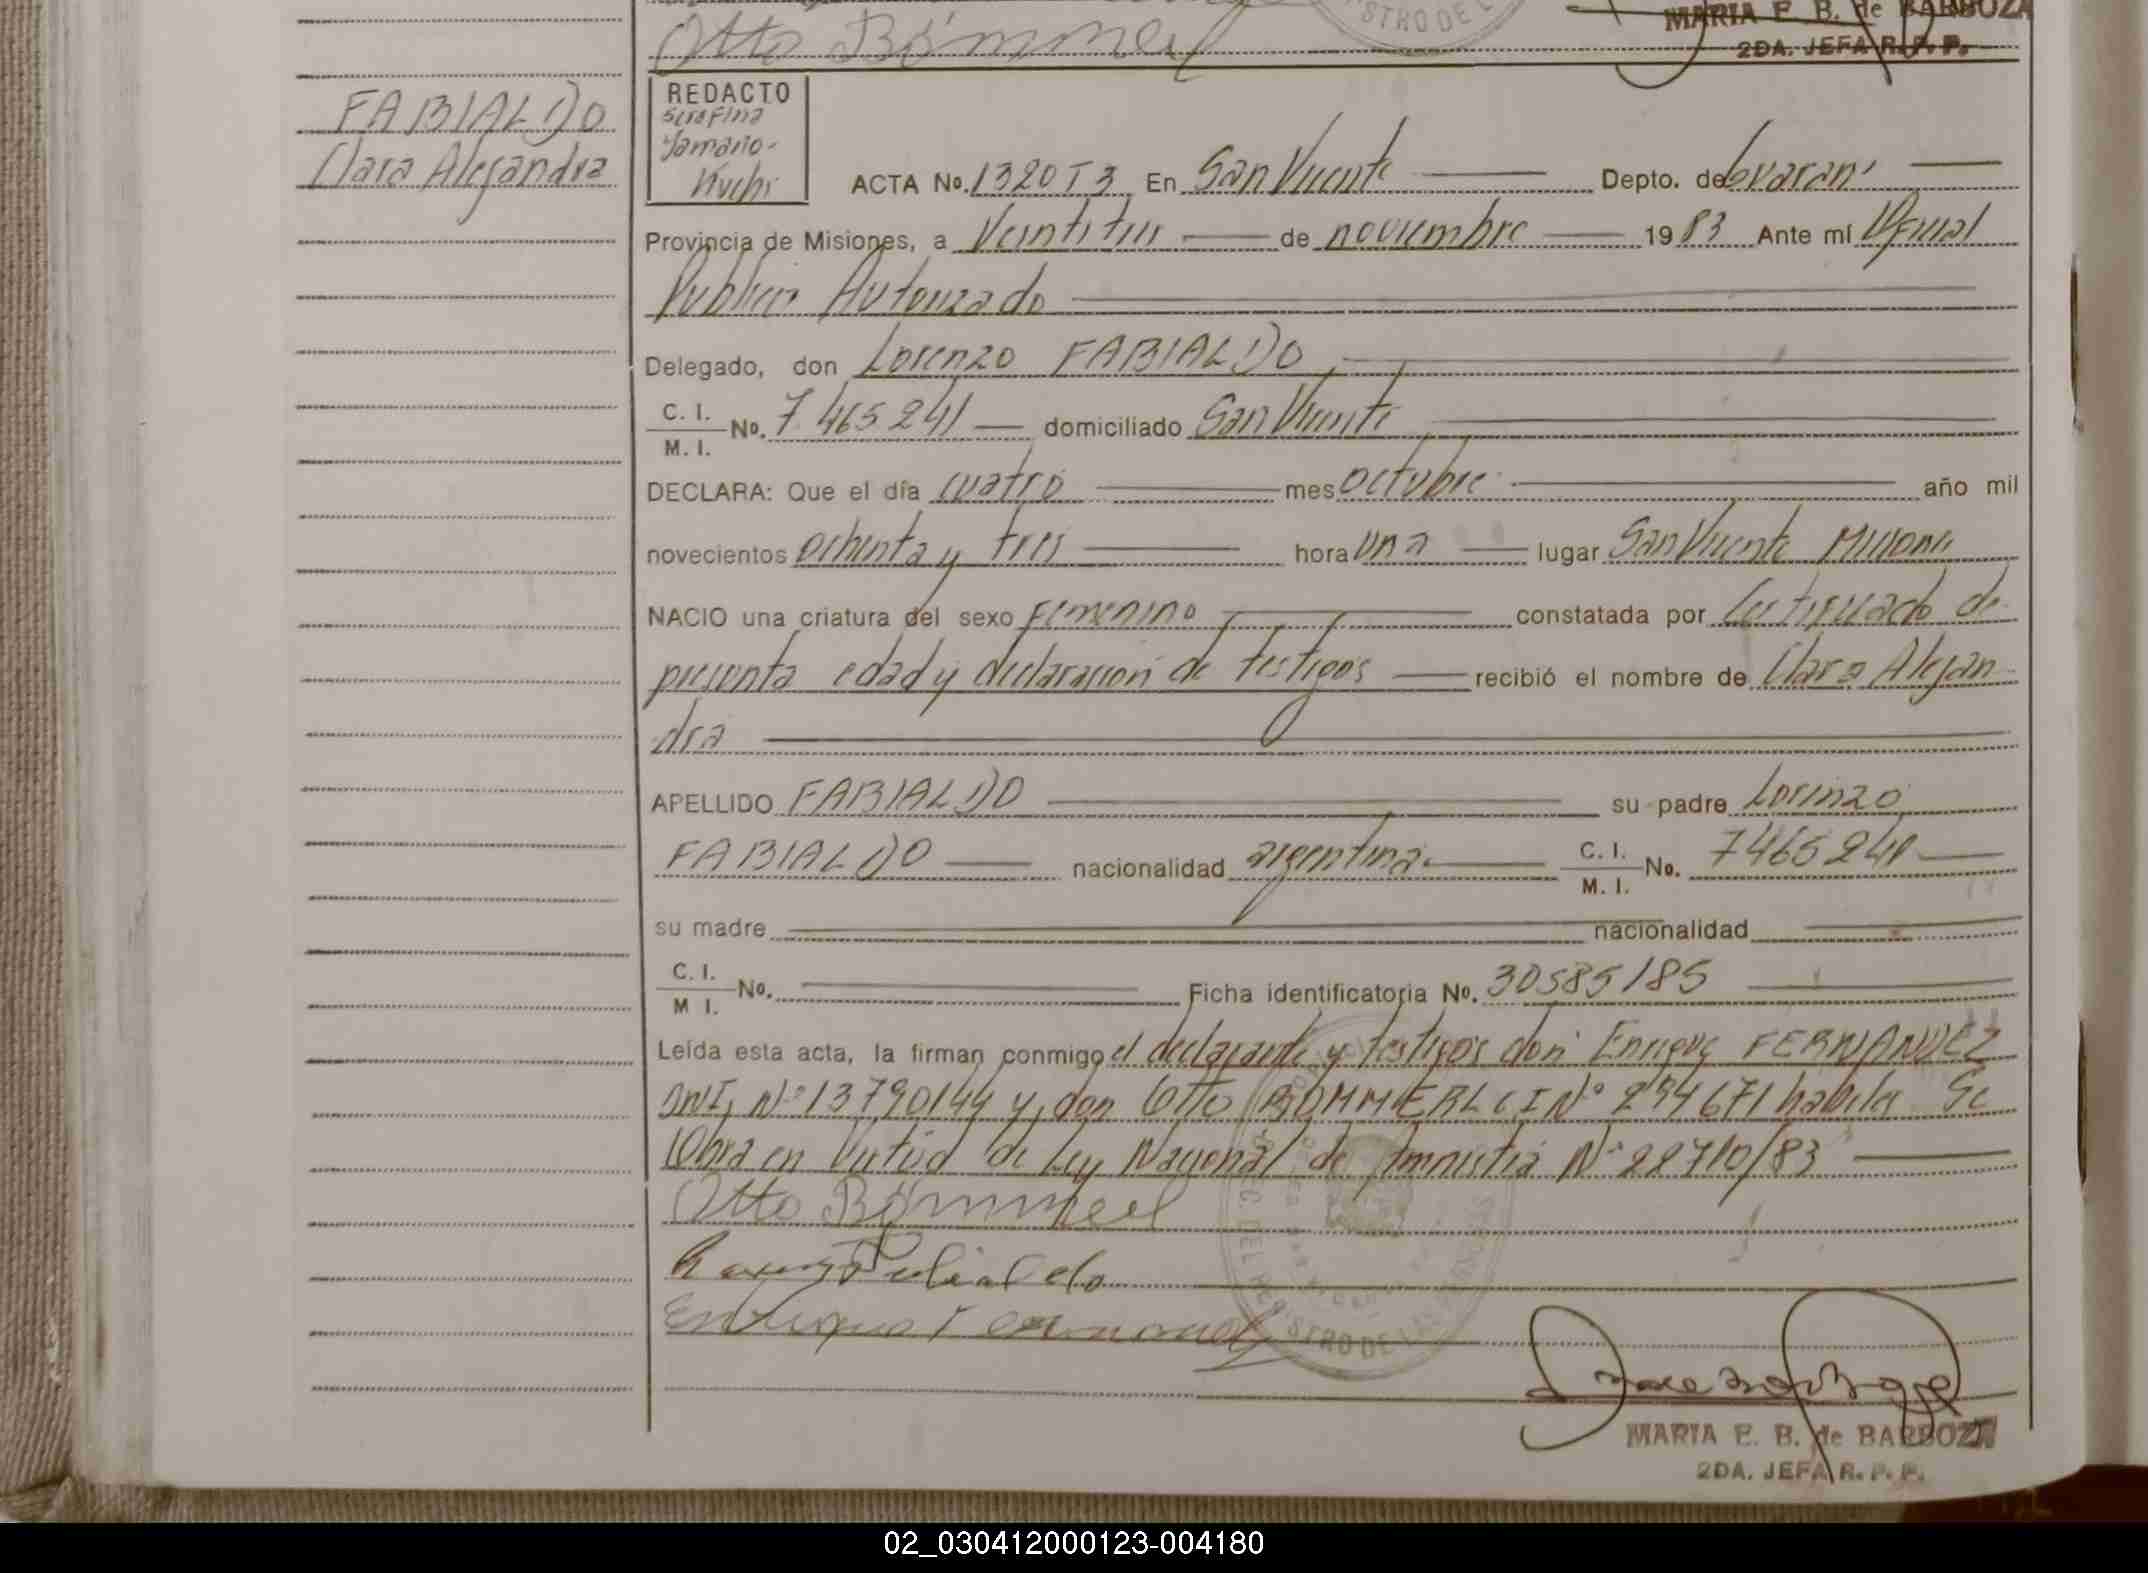 Otto Bömmerl
STRO DE L
MARIA E. B. de BARBOZA
2DA. JEFA R. P. P.
FABIALDO
Clara Alejandra
REDACTO
Serafina
Yamario-
Kuchi
ACTA No. 1320T3 En San Vicente Depto. de Guarani
Provincia de Misiones, a Veintitres de noviembre 1983 Ante mí Oficial
Publico Autorizado
Delegado, don Lorenzo FABIALDO
C. I. / M. I. No. 7.465241 domiciliado San Vicente
DECLARA: Que el día cuatro mes octubre año mil
novecientos ochenta y tres hora una lugar San Vicente Misiones
NACIO una criatura del sexo Femenino constatada por Certificado de
presunta edad y declaracion de testigos recibió el nombre de Clara Alejan
dra
APELLIDO FABIALDO su padre Lorenzo
FABIALDO nacionalidad argentina C. I. / M. I. No. 7465241
su madre nacionalidad
C. I. / M I. No. Ficha identificatoria No. 30585185
Leída esta acta, la firman conmigo el declarante y testigos don Enrique FERNANDEZ
DNI, Nº 13790144 y don Otto BOMMERL CI Nº 234671 habiles Se
Obra en Virtud de Ley Nacional de Amnistia Nº 22710/83
Otto Bömmerl
Fabialdo
Enrique Fernandez
STRO DE L
MARIA E. B. de BARBOZA
2DA. JEFA R. P. P.
02_030412000123-004180